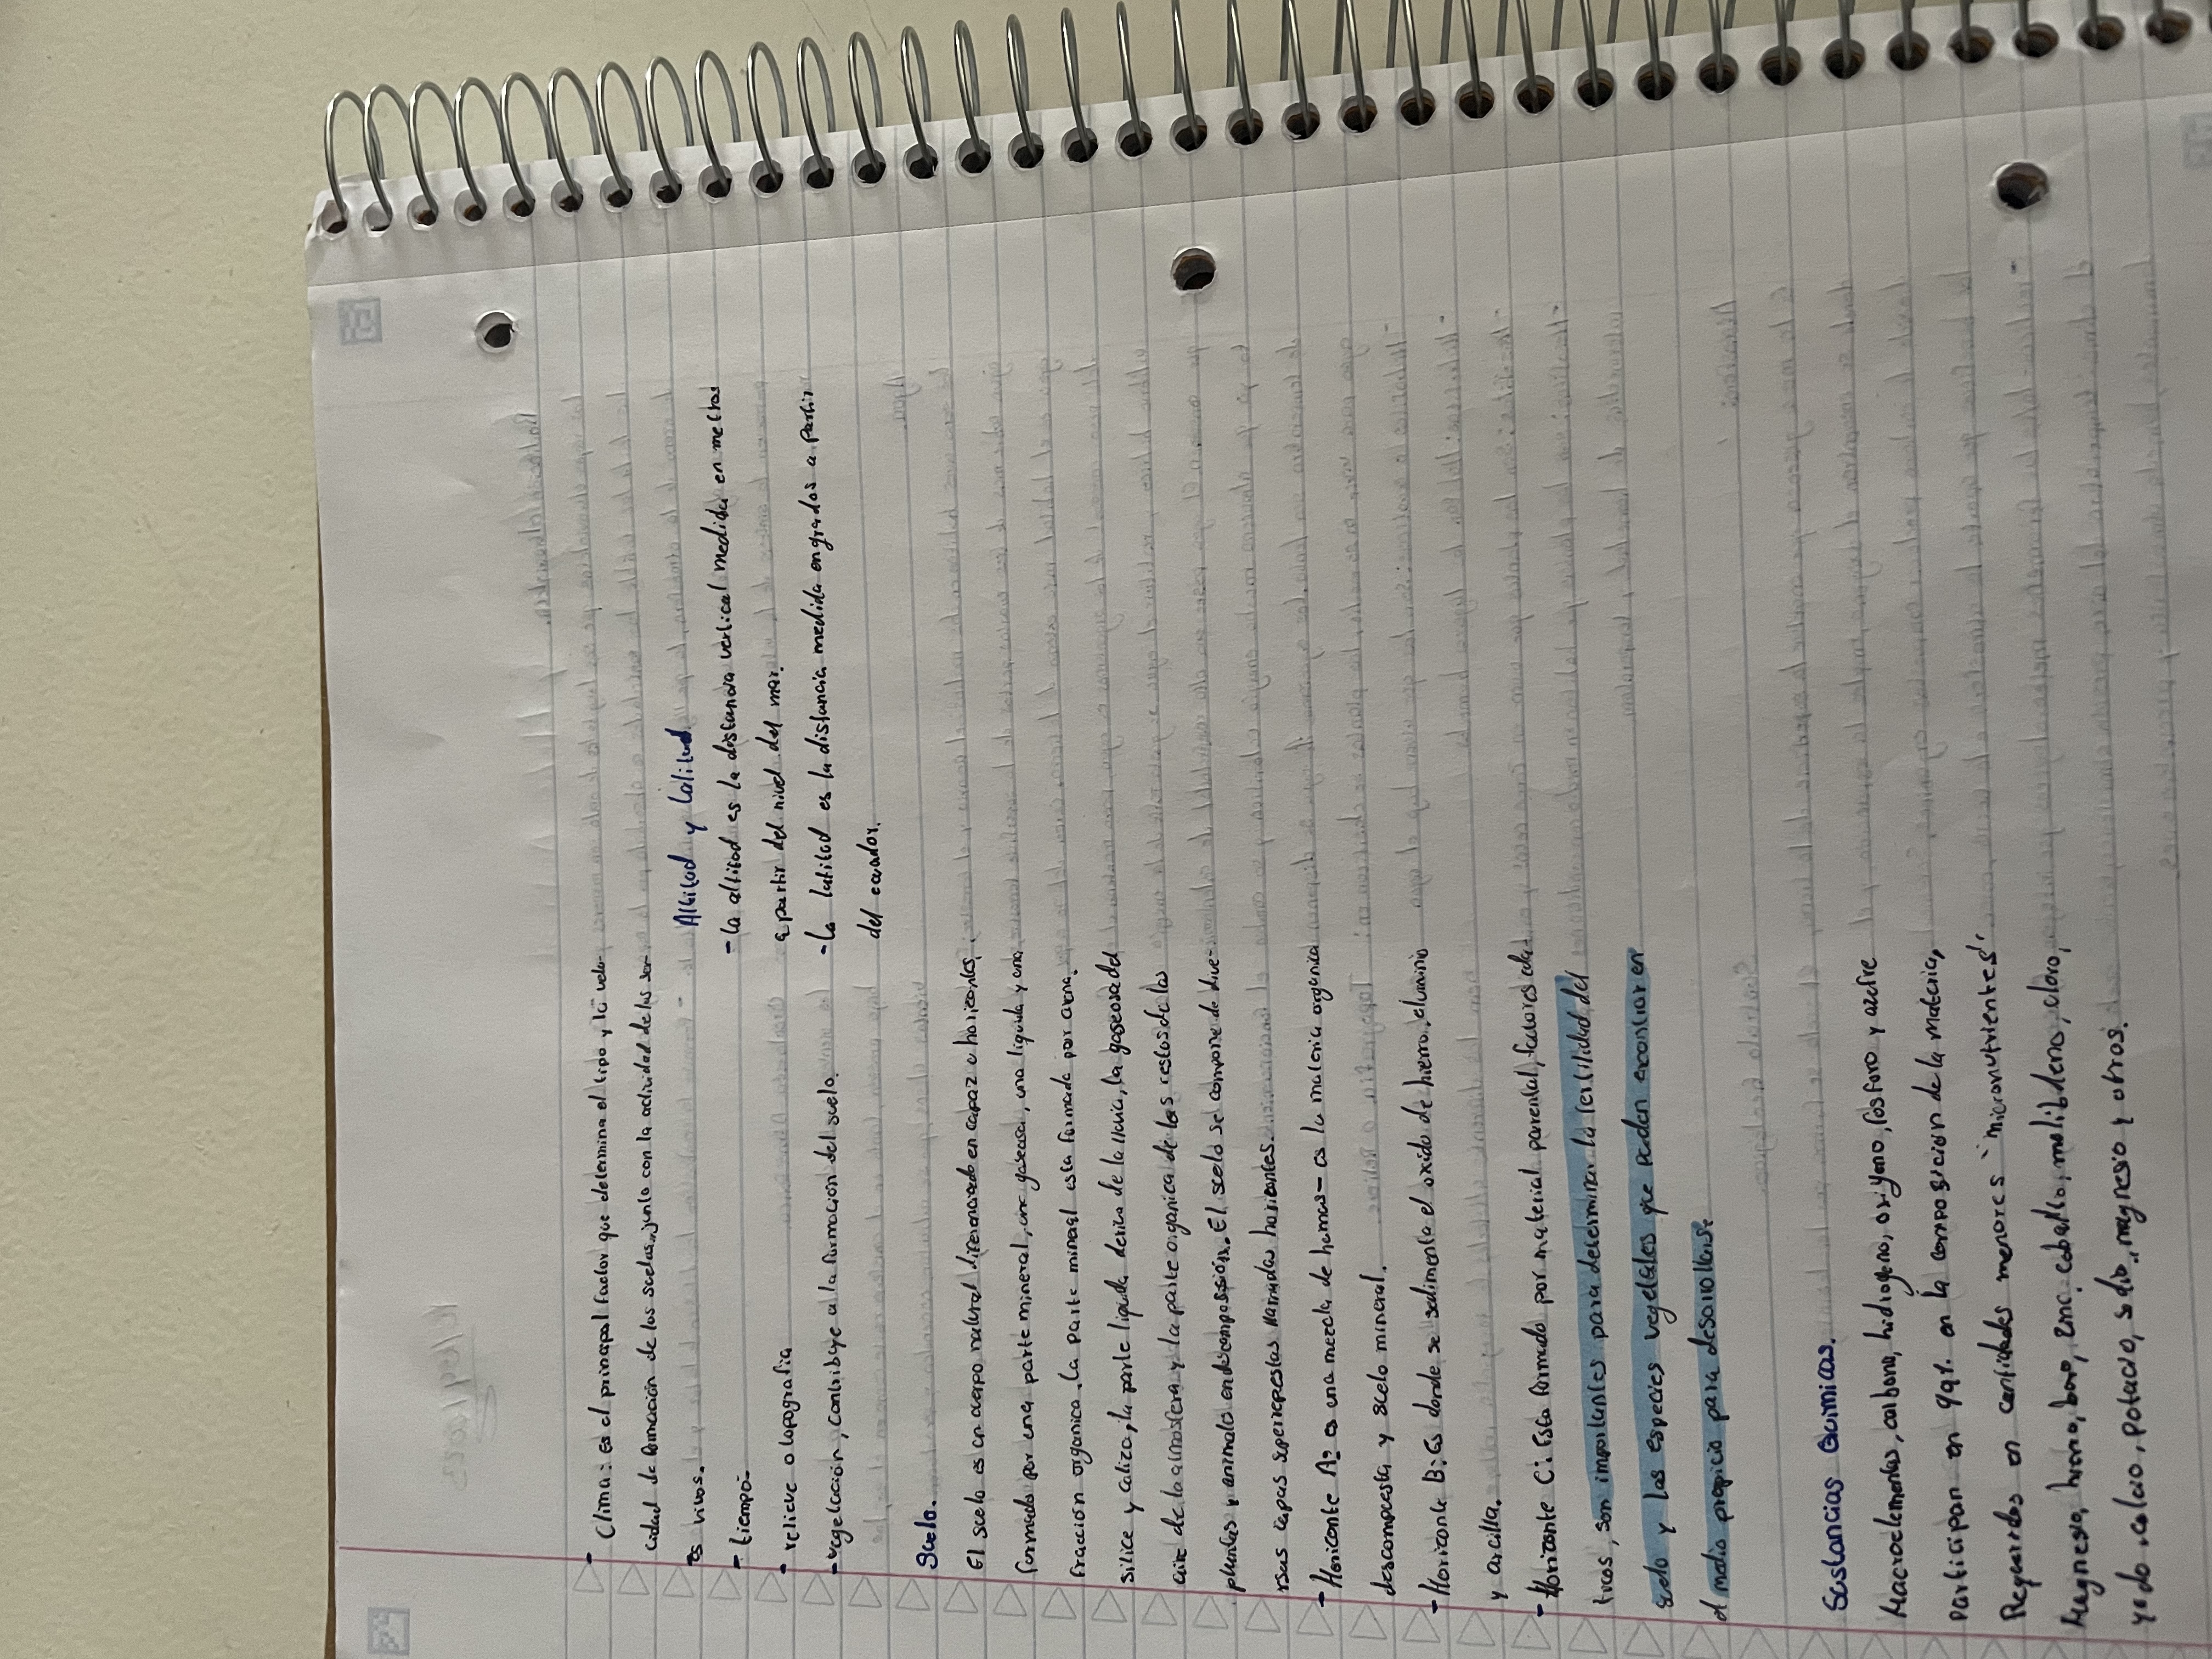 - Clima: es el principal factor que determina el tipo y la velo-
cidad de formación de los suelos, junto con la actividad de los ser-
es vivos.
- tiempo
- relieve o topografía
- vegetación, contribuye a la formación del suelo.
Altitud y Latitud.
- La altitud es la distancia vertical medida en metros
a partir del nivel del mar.
- La latitud es la distancia medida en grados a partir
del ecuador.
Suelo.
El suelo es un cuerpo natural diferenciado en capaz o horizontes,
formado por una parte mineral, una gaseosa, una liquida y una
fracción organica. La parte mineral esta formada por arena,
silice y caliza, la parte liquida deriva de la lluvia, la gaseosa del
aire de la atmosfera y la parte organica de los restos de las
plantas y animales en descomposición. El suelo se compone de dive-
rsas capas superpuestas llamadas horizontes.
- Horizonte A: es una mezcla de humus - es la materia organica
descompuesta y suelo mineral.
- Horizonte B: Es donde se sedimenta el oxido de hierro, aluminio
y arcilla.
- Horizonte C: Esta formado por material parental, factores
, son importantes para determinar la fertilidad del
suelo y las especies vegetales que puden encontrar en
el medio propicio para desarrollarse
Sustancias Quimicas.
Macroelementos, carbono, hidrogeno, oxigeno, fosforo y azufre
participan en 99% en la composicion de la materia,
Requeridos en cantidades menores "micronutrientes",
Magnesio, hierro, boro, zinc, cobalto, molibdeno, cloro,
yodo, calcio, potacio, sodio, magnesio y otros.